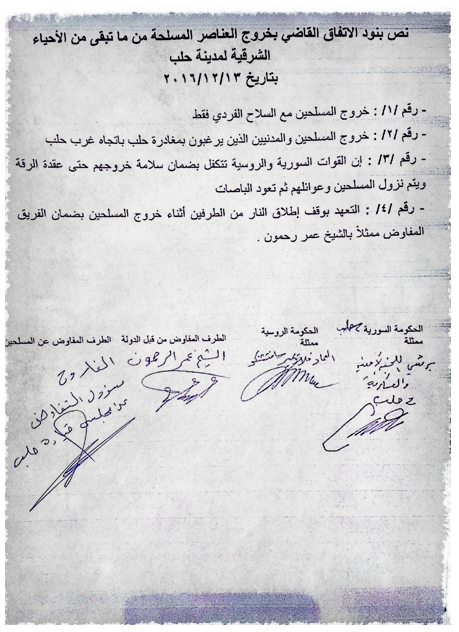 نص بنود الاتفاق القاضي بخروج العناصر المسلحة من ما تبقى من الأحياء
الشرقية لمدينة حلب
بتاريخ ٢٠١٦/١٢/١٣
- رقم /١/ : خروج المسلحين مع السلاح الفردي فقط
- رقم /٢/ : خروج المسلحين والمدنيين الذين يرغبون بمغادرة حلب باتجاه غرب حلب
- رقم /٣/ : إن القوات السورية والروسية تتكفل بضمان سلامة خروجهم حتى عقدة الرقة
ويتم نزول المسلحين وعوائلهم ثم تعود الباصات
- رقم /٤/ : التعهد بوقف إطلاق النار من الطرفين أثناء خروج المسلحين بضمان الفريق
المفاوض ممثلاً بالشيخ عمر رحمون .
الحكومة السورية ح حلب
ممثلة
الحكومة الروسية
ممثلة
الطرف المفاوض من قبل الدولة
الشيخ عمر الرحمون
الطرف المفاوض عن المسلحين
الفاروق
مسؤول التفاوض
عن مجلس قيادة حلب